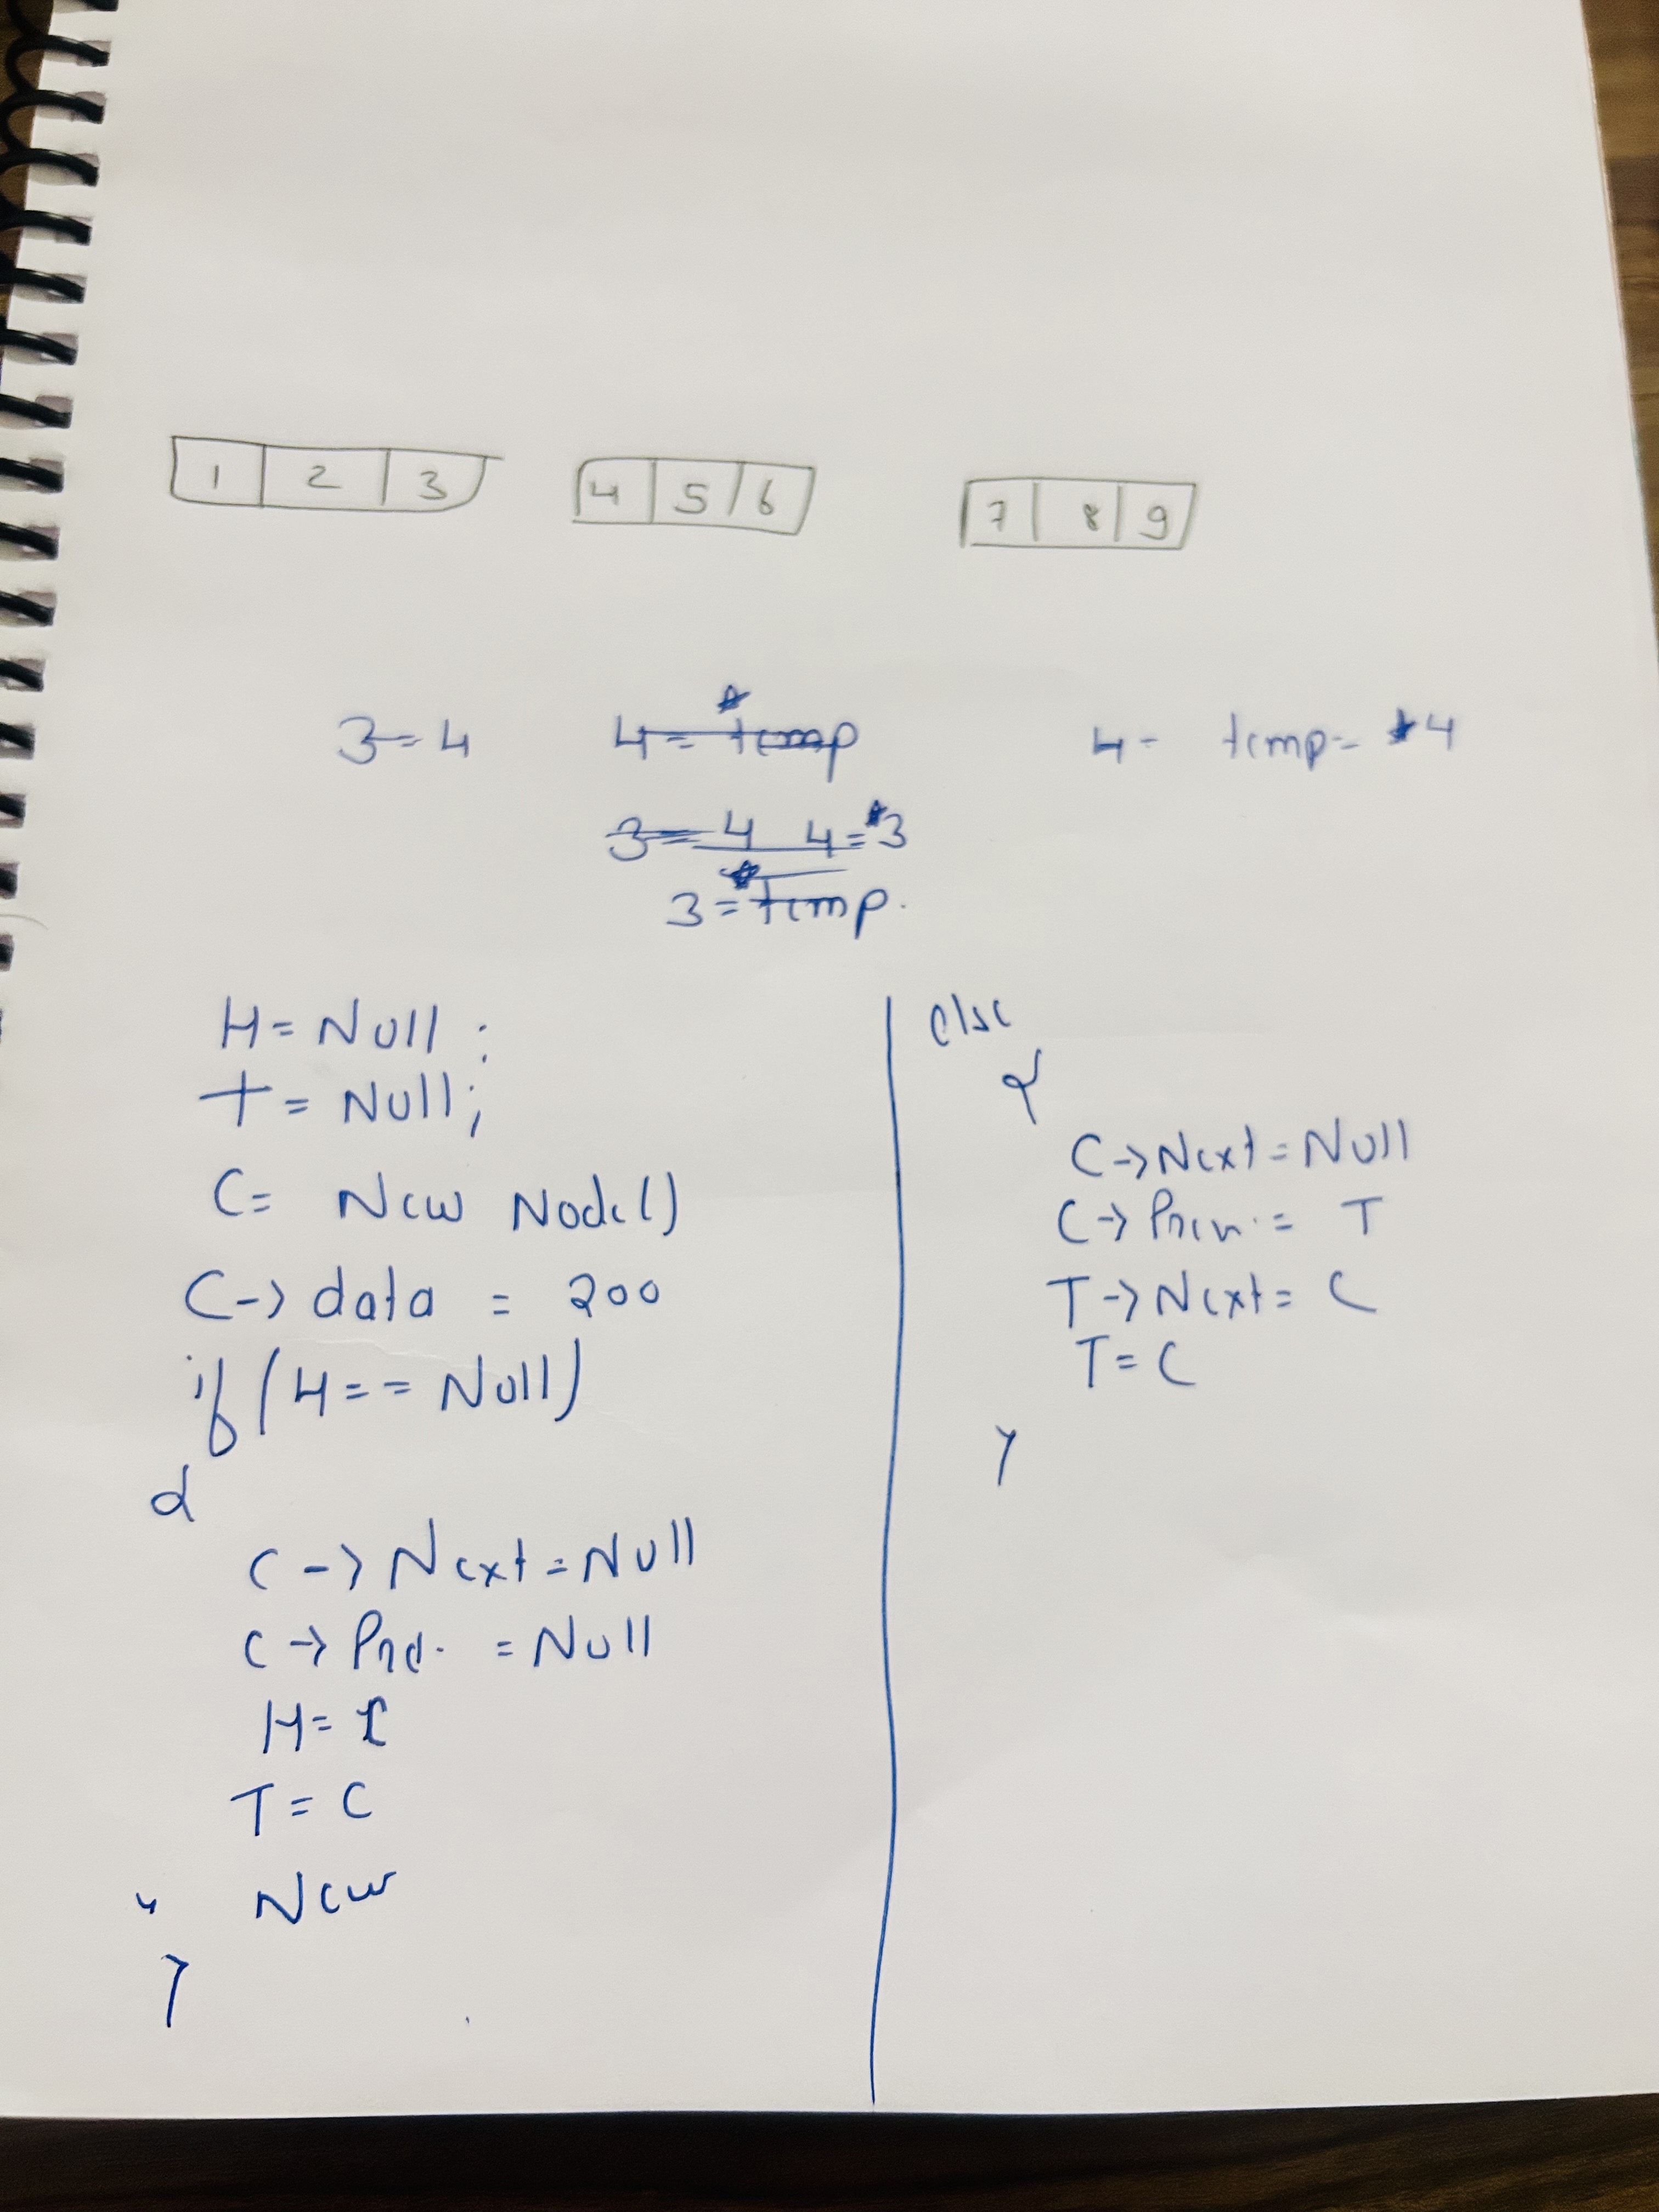 1 2 3 4 5 6 7 8 9
3=4 4=*temp 4- temp= *4
3=4 4=*3
3=*temp.
H=Null;
T=Null;
C= New Node()
C->data = 200
if(H==Null)
{
C->Next=Null
C-> = Null
H=C
T=C
New
}
else
{
C->Next=Null
C-> = T
T->Next=C
T=C
}